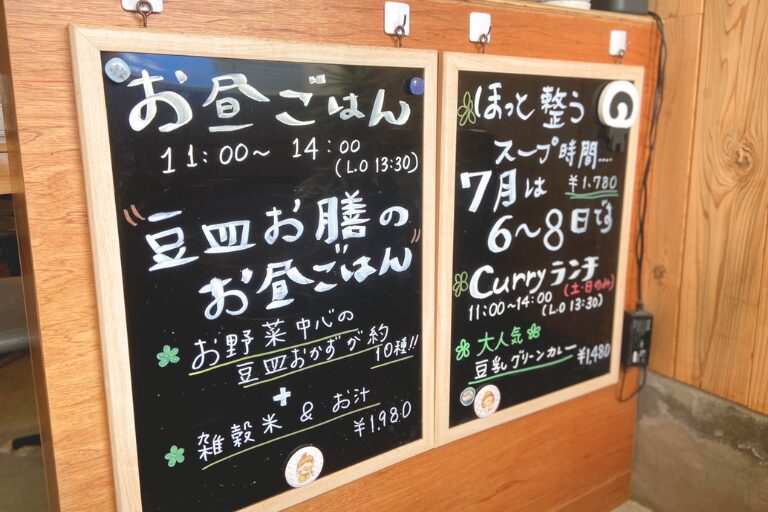 お昼ごはん
11:00〜 14:00
(L.O 13:30)
豆皿お膳の
お昼ごはん
お野菜中心の
豆皿おかずが約
10種!!
+
雑穀米 & お汁
¥1,980
ほっと 整う
スープ時間....
¥1,780
7月は
6〜8日です
Curry ランチ
(土・日のみ)
11:00〜14:00
(L.O 13:30)
大人気
豆乳グリーンカレー ¥1,480